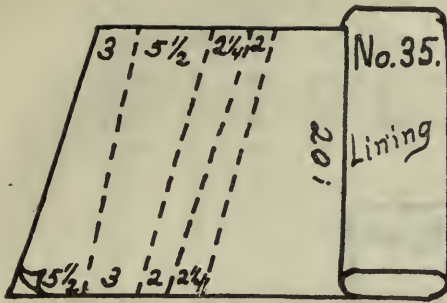 3 5½ 2¼ 2
No. 35.
Lining
20
5½ 3 2 2¼